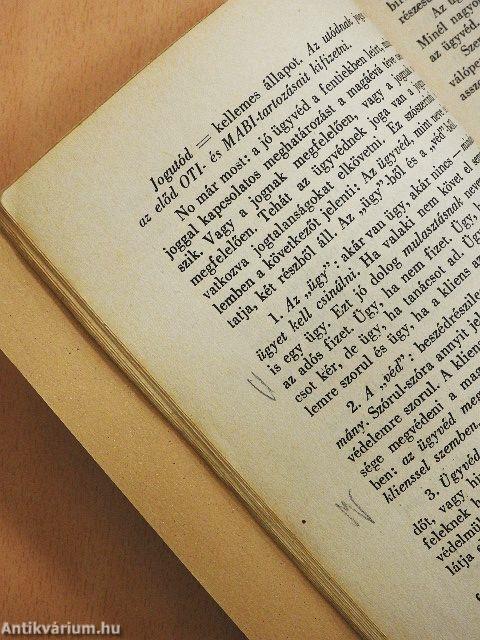 Jogutód = kellemes állapot. Az utódnak jog
az előd OTI- és MABI-tartozásait kifizetni.
No már most: a jó ügyvéd a fentiekben leírt,
joggal kapcsolatos meghatározást a magáévá téve
szik. Vagy a jognak megfelelően, vagy a jognak
megfelelően. Tehát az ügyvédnek joga van a jog
vatkozva jogtalanságokat elkövetni. Ez szószerint
lemben a következőt jelenti: Az ügyvéd, mint neve
tatja, két részből áll. Az „ügy"-ből és a „véd"-ből
1. Az „ügy": akár van ügy, akár nincs —
ügyet kell csinálni. Ha valaki nem követ el sem
is egy ügy. Ezt jó dolog mulasztásnak neve
az adós fizet. Ügy, ha nem fizet. Ügy,
csot kér, de ügy, ha tanácsot ad. Ügy
lemre szorul és ügy, ha a kliens az
2. A „véd": beszédrészile
mány. Szóról-szóra annyit jel
védelemre szorul. A klien
sége megvédeni a mag
ben: az ügyvéd meg
klienssel szemben.
3. Ügyvéd
dőt, vagy hi
feleknek
védelmük
látja el
részese
Minél nagyo
az ügyvéd
Sze
válópe
assz
Antikvárium.hu